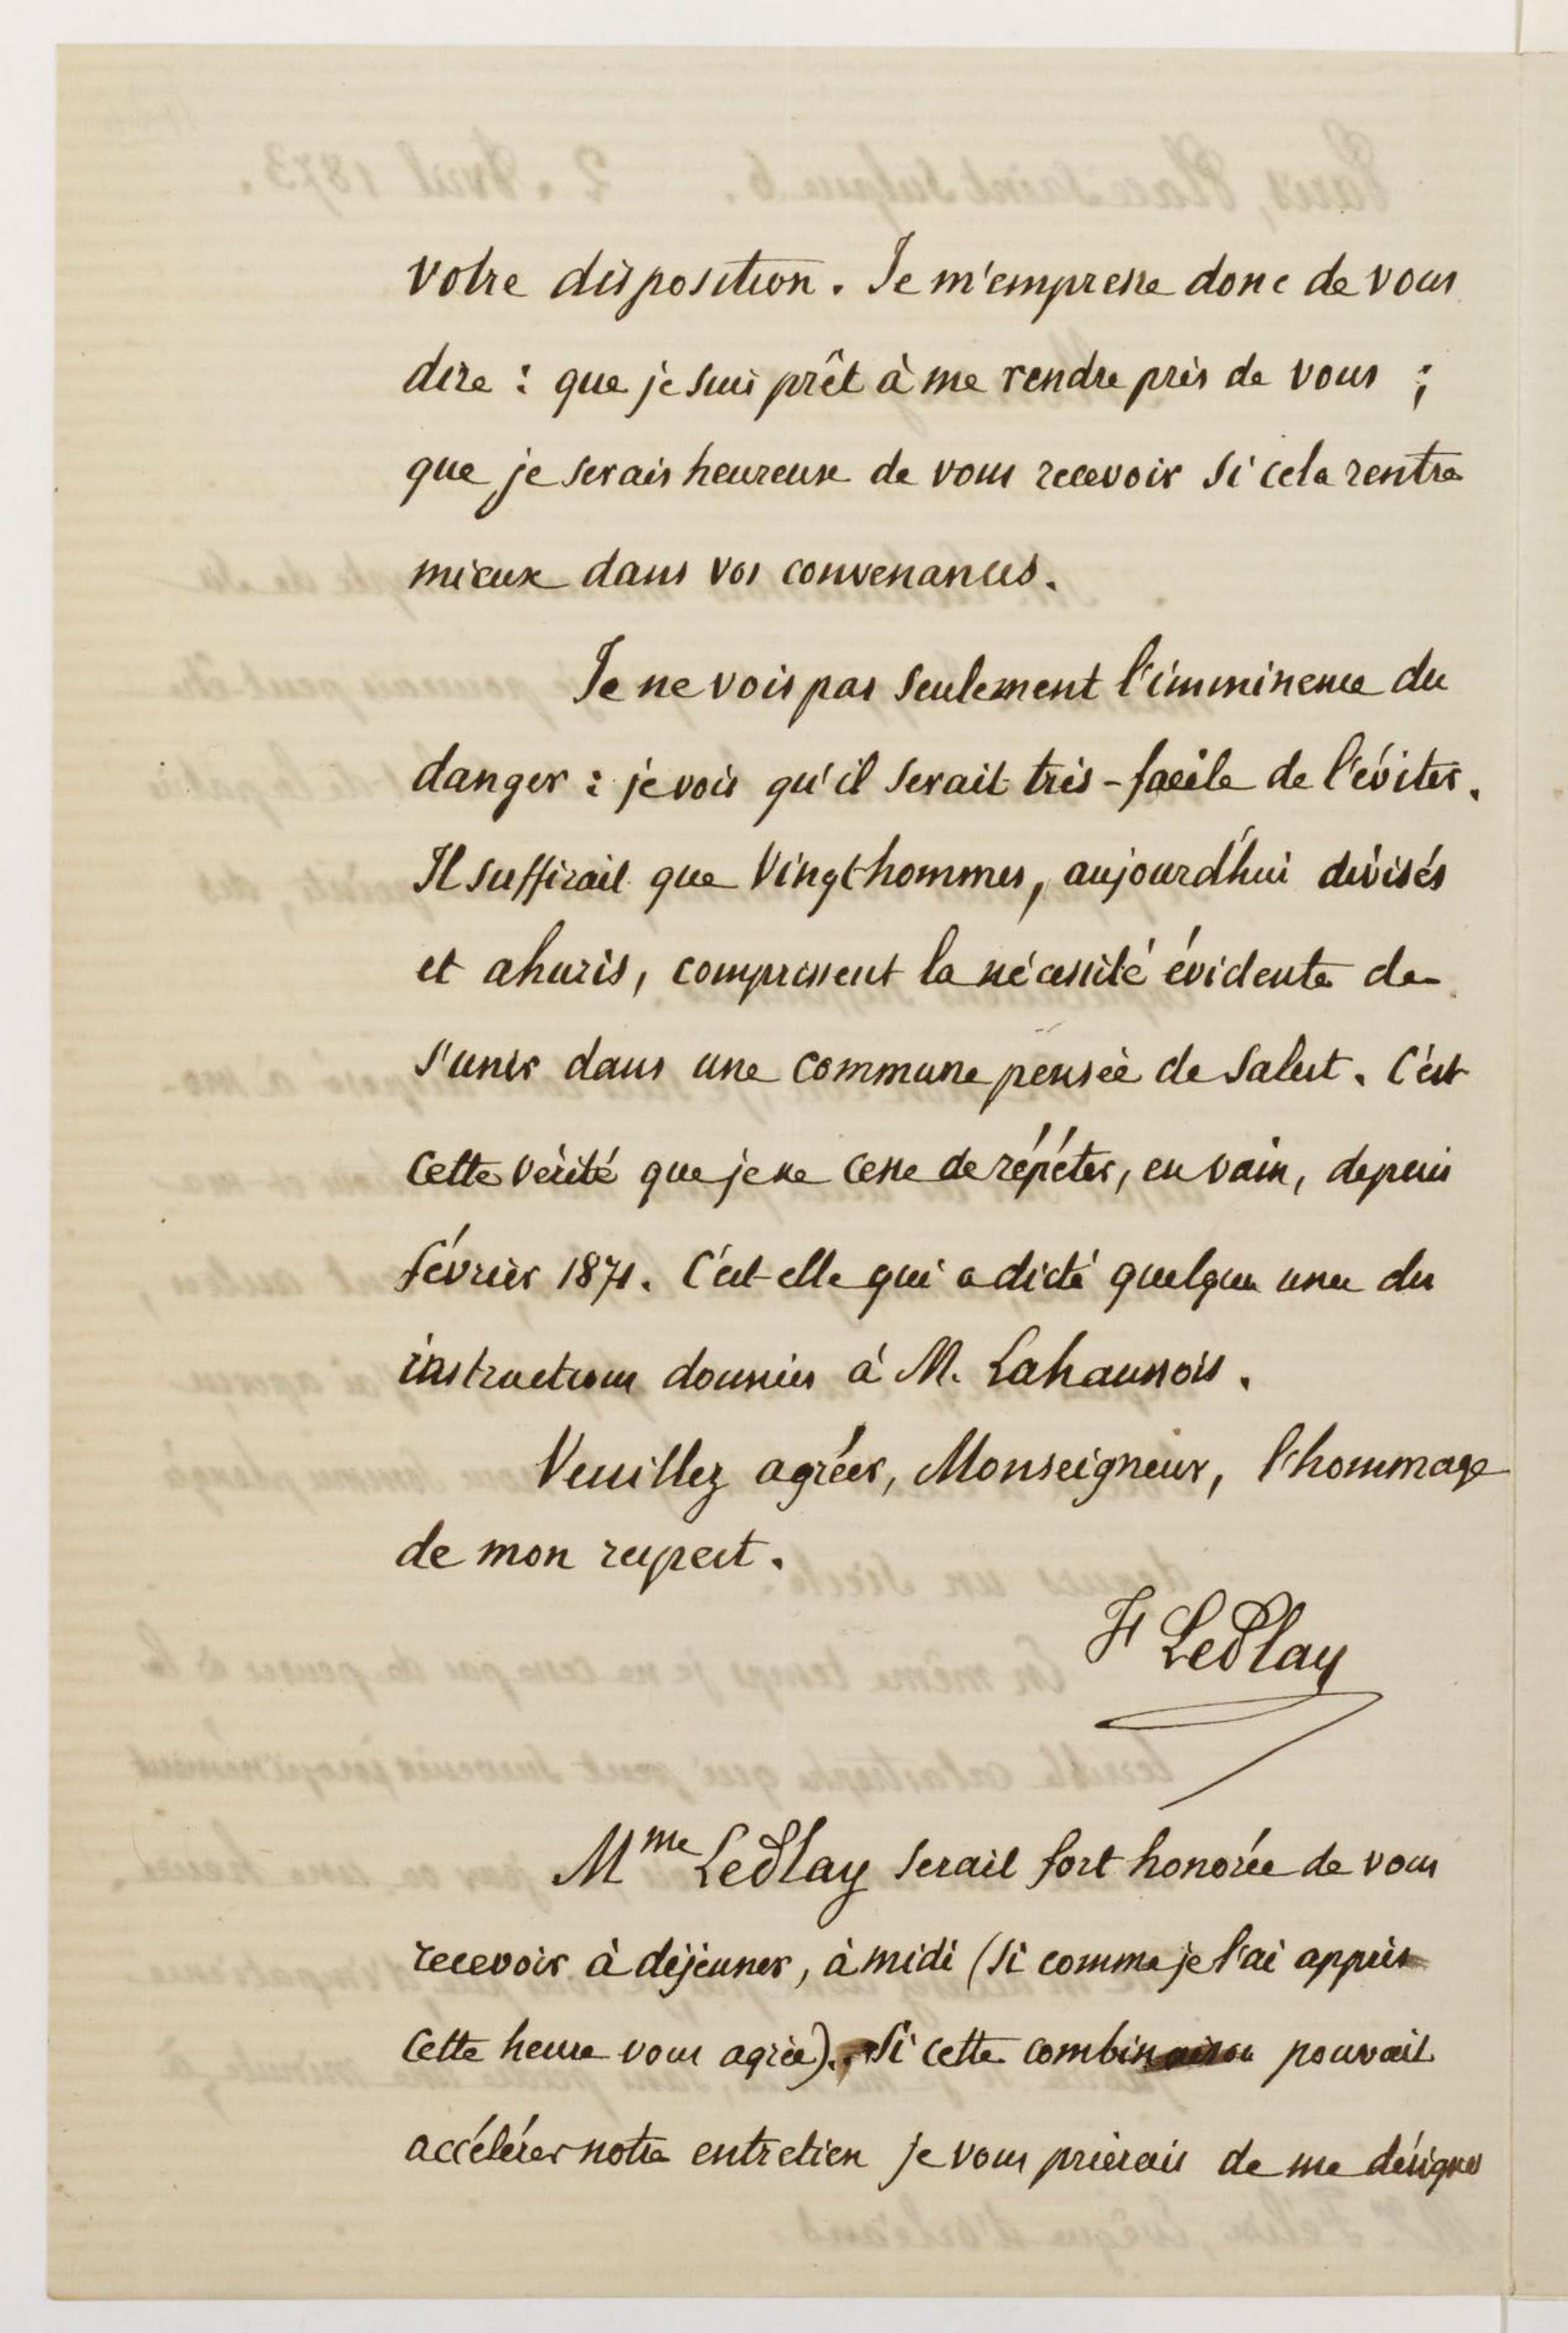 votre disposition. Je m'empresse donc de vous
dire : que je suis prêt à me rendre près de vous ;
que je serais heureux de vous recevoir si cela rentre
mieux dans vos convenances.
Je ne vois pas seulement l'imminence du
danger : je vois qu'il serait très-facile de l'éviter.
Il suffirait que vingt hommes, aujourd'hui divisés
et ahuris, comprissent la nécessité évidente de
s'unir dans une commune pensée de salut. C'est
cette vérité que je ne cesse de répéter, en vain, depuis
février 1871. C'est elle qui a dicté quelques unes des
instructions données à M. Lahaussois.
Veuillez agréer, Monseigneur, l'hommage
de mon respect.
F LePlay
Mme LePlay serait fort honorée de vous
recevoir à déjeuner, à midi (si comme je l'ai appris
cette heure vous agrée). Si cette combinaison pouvait
accélérer notre entretien je vous prierais de me désigner